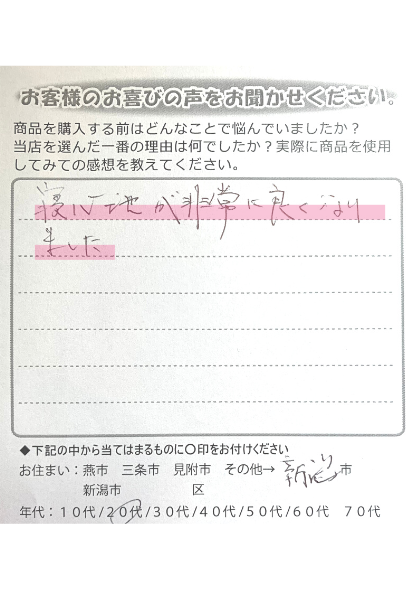 お客様のお喜びの声をお聞かせください。
商品を購入する前はどんなことで悩んでいましたか？
当店を選んだ一番の理由は何でしたか？実際に商品を使用
してみての感想を教えてください。
寝心地が非常に良くなり
ました
◆下記の中から当てはまるものに〇印をお付けください
お住まい：燕市 三条市 見附市 その他→ 新潟 市
新潟市 区
年代：１０代/２０代/３０代/４０代/５０代/６０代 ７０代